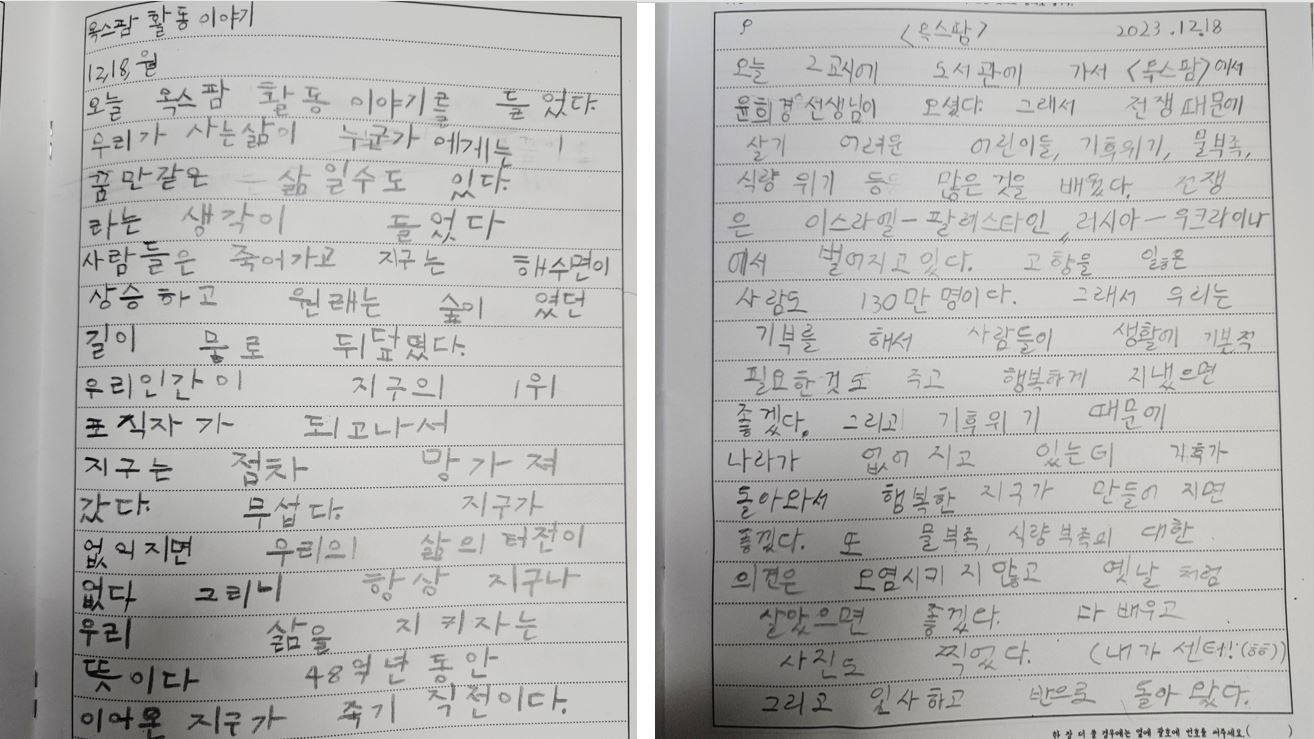 옥스팜 활동 이야기
12.18. 월
오늘 옥스팜 활동 이야기를 들었다.
우리가 사는삶이 누군가 에게는
꿈만같은 삶 일수도 있다.
라는 생각이 들었다
사람들은 죽어가고 지구는 해수면이
상승하고 원래는 숲이 였던
길이 물로 뒤덮혔다.
우리인간이 지구의 1위
포식자가 되고나서
지구는 점차 망가져
갔다. 무섭다. 지구가
없어지면 우리의 삶의 터전이
없다 그러니 항상 지구나
우리 삶을 지키자는
뜻이다 48억년 동안
이어온 지구가 죽기 직전이다.
9 <옥스팜> 2023.12.18
오늘 2교시에 도서관에 가서 <옥스팜>에서
윤희경 선생님이 오셨다. 그래서 전쟁때문에
살기 어려운 어린이들, 기후위기, 물부족,
식량 위기 등 많은것을 배웠다. 전쟁
은 이스라엘-팔레스타인, 러시아-우크라이나
에서 벌어지고있다. 고향을 잃은
사람도 130만명이다. 그래서 우리는
기부를 해서 사람들이 생활에 기본적
필요한것도 주고 행복하게 지냈으면
좋겠다. 그리고 기후위기 때문에
나라가 없어지고 있는데 기후가
돌아와서 행복한 지구가 만들어 지면
좋겠다. 또 물부족, 식량부족의 대한
의견은 오염시키지않고 옛날 처럼
살았으면 좋겠다. 다 배우고
사진도 찍었다. (내가 센터!(ㅎㅎ))
그리고 인사하고 반으로 돌아 왔다.
한 장 더 쓸 경우에는 옆에 괄호에 번호를 써주세요.( )